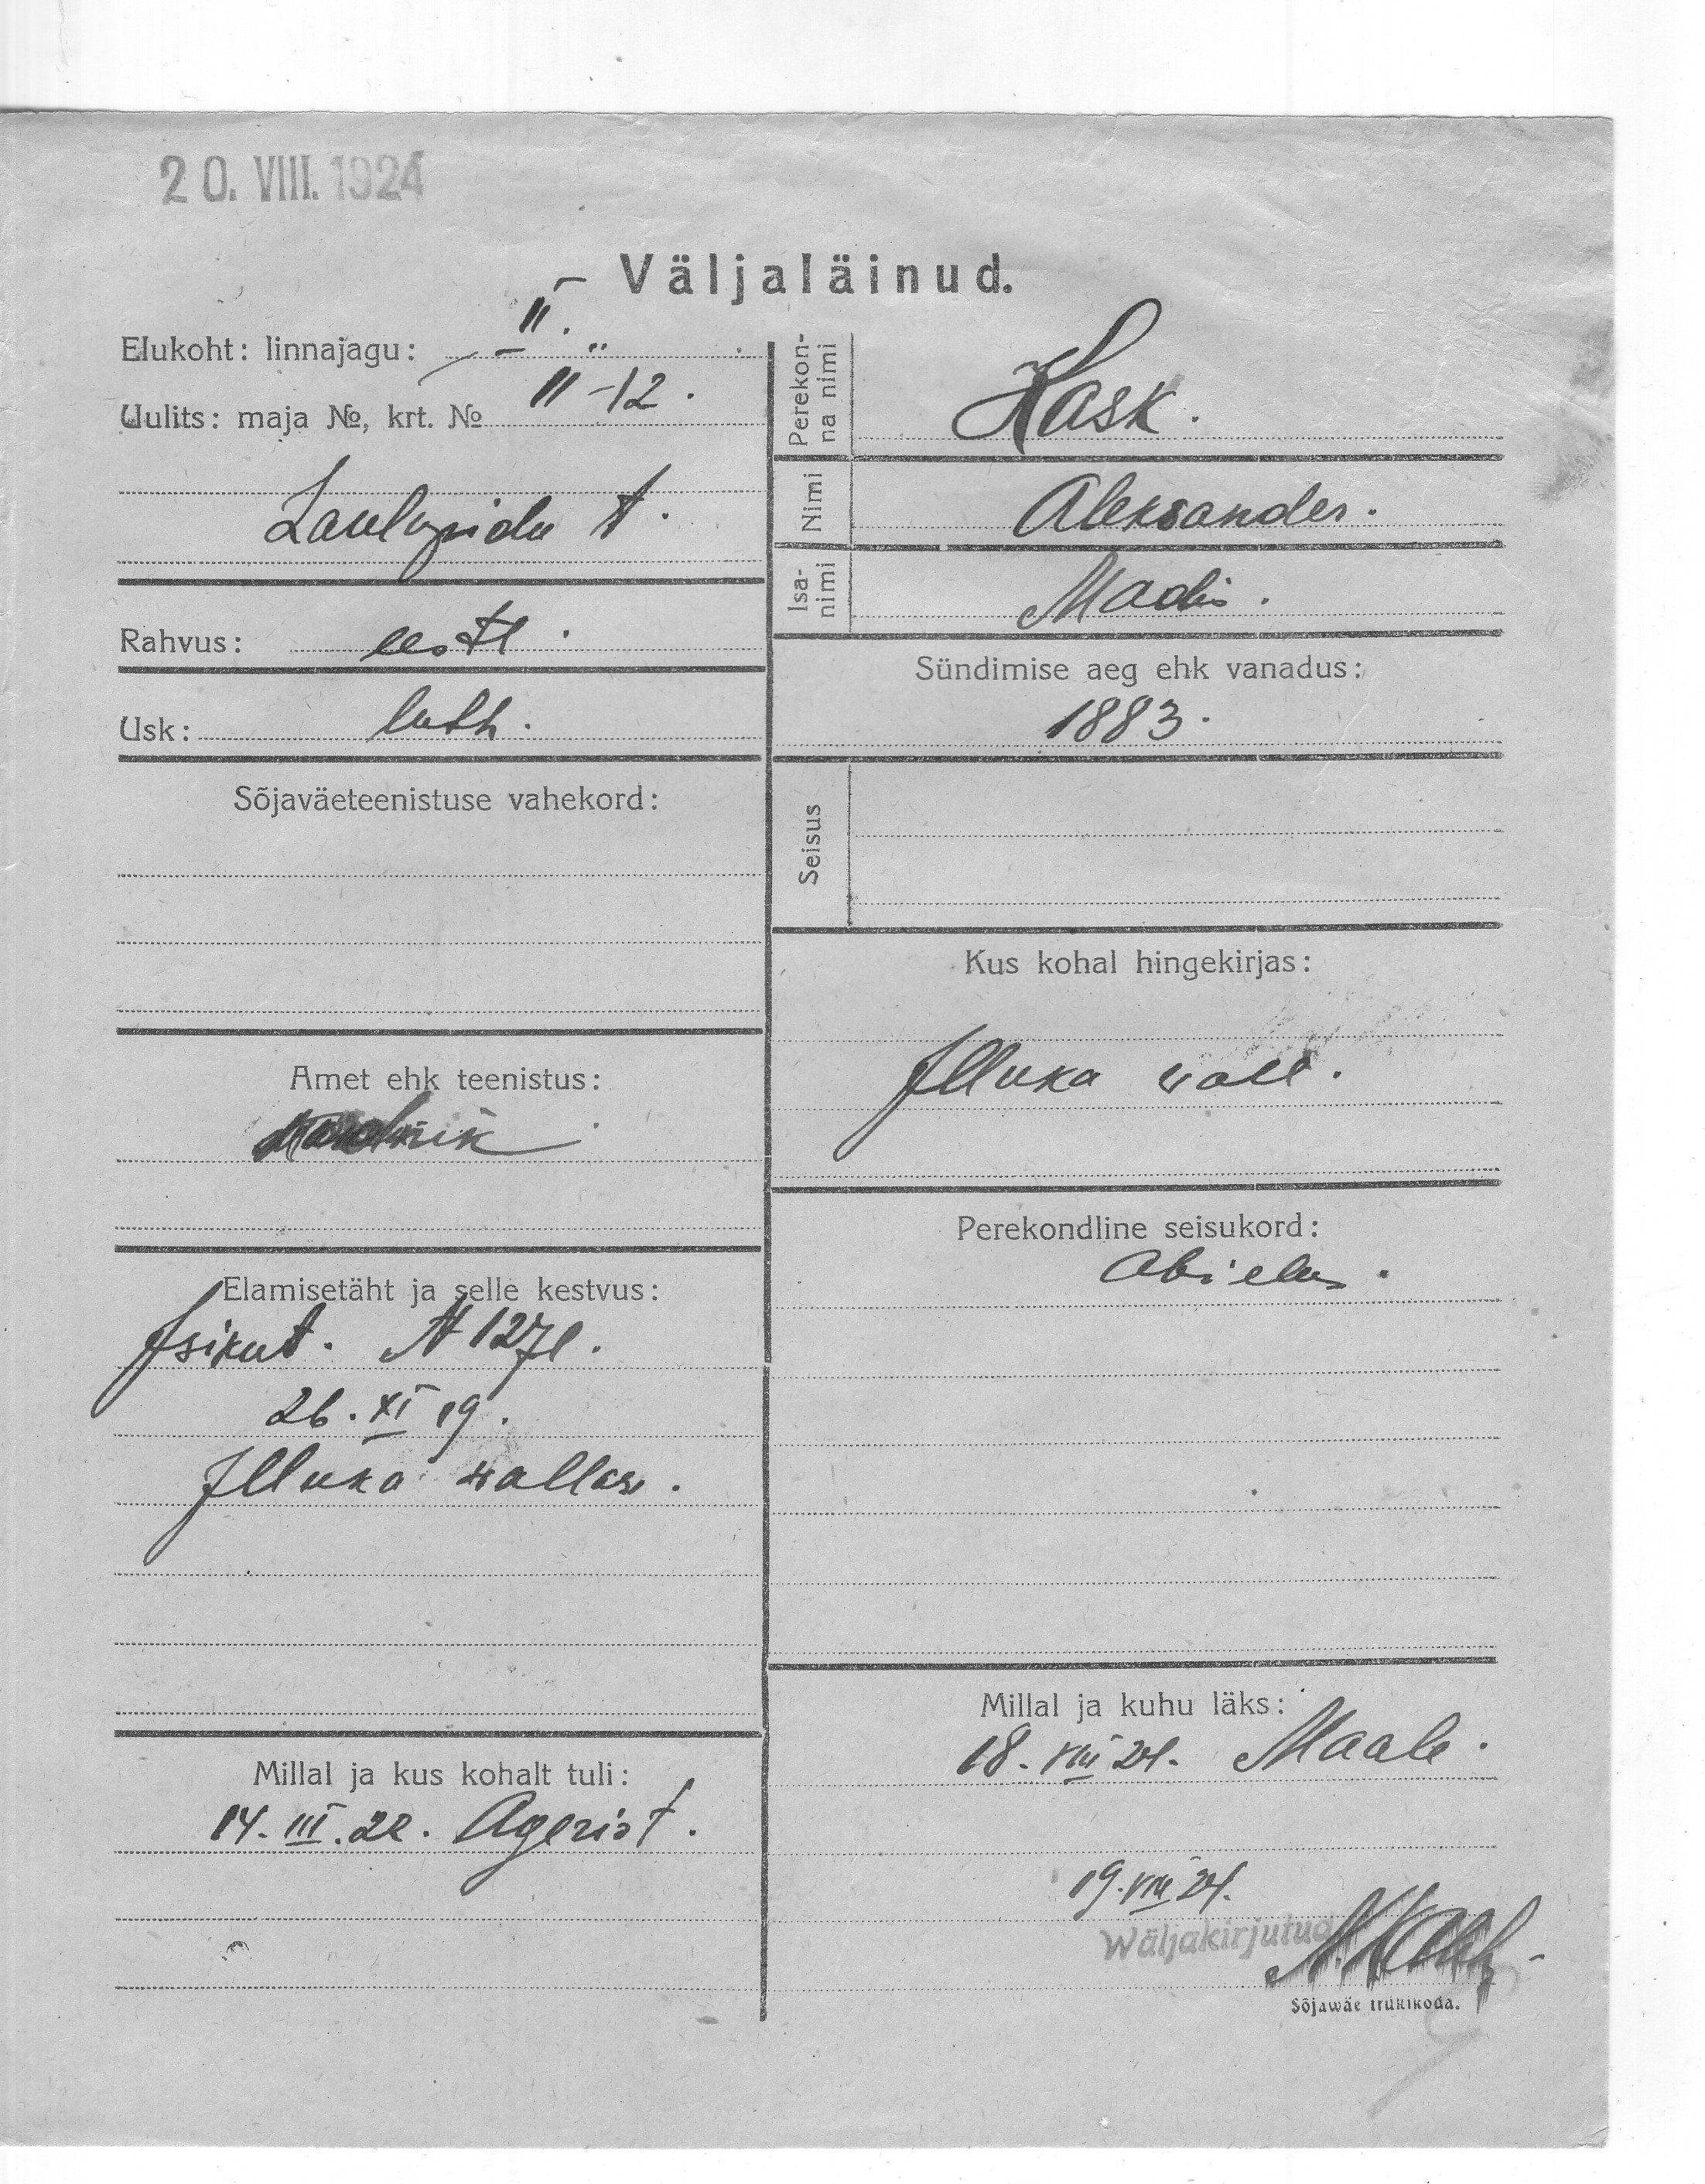 20. VIII. 1924
Väljaläinud.
Elukoht: linnajagu: II.
Uulits: maja №, krt. № 11-12.
Laulupidu t.
Rahvus: eestl.
Usk: luth.
Sõjaväeteenistuse vahekord:
Amet ehk teenistus:
Elamisetäht ja selle kestvus:
Isikut. N 1271.
26. XI 19.
Illuka wallas.
Millal ja kus kohalt tuli:
14. III. 22. Agerist.
Perekonna nimi
Kask.
Nimi
Aleksander.
Isanimi
Madis.
Sündimise aeg ehk vanadus:
1883.
Seisus
Kus kohal hingekirjas:
Illuka wall.
Perekondline seisukord:
Abielus.
Millal ja kuhu läks:
18. VIII 24. Maale.
19. VIII 24.
Wäljakirjutud
Sõjawäe trükikoda.